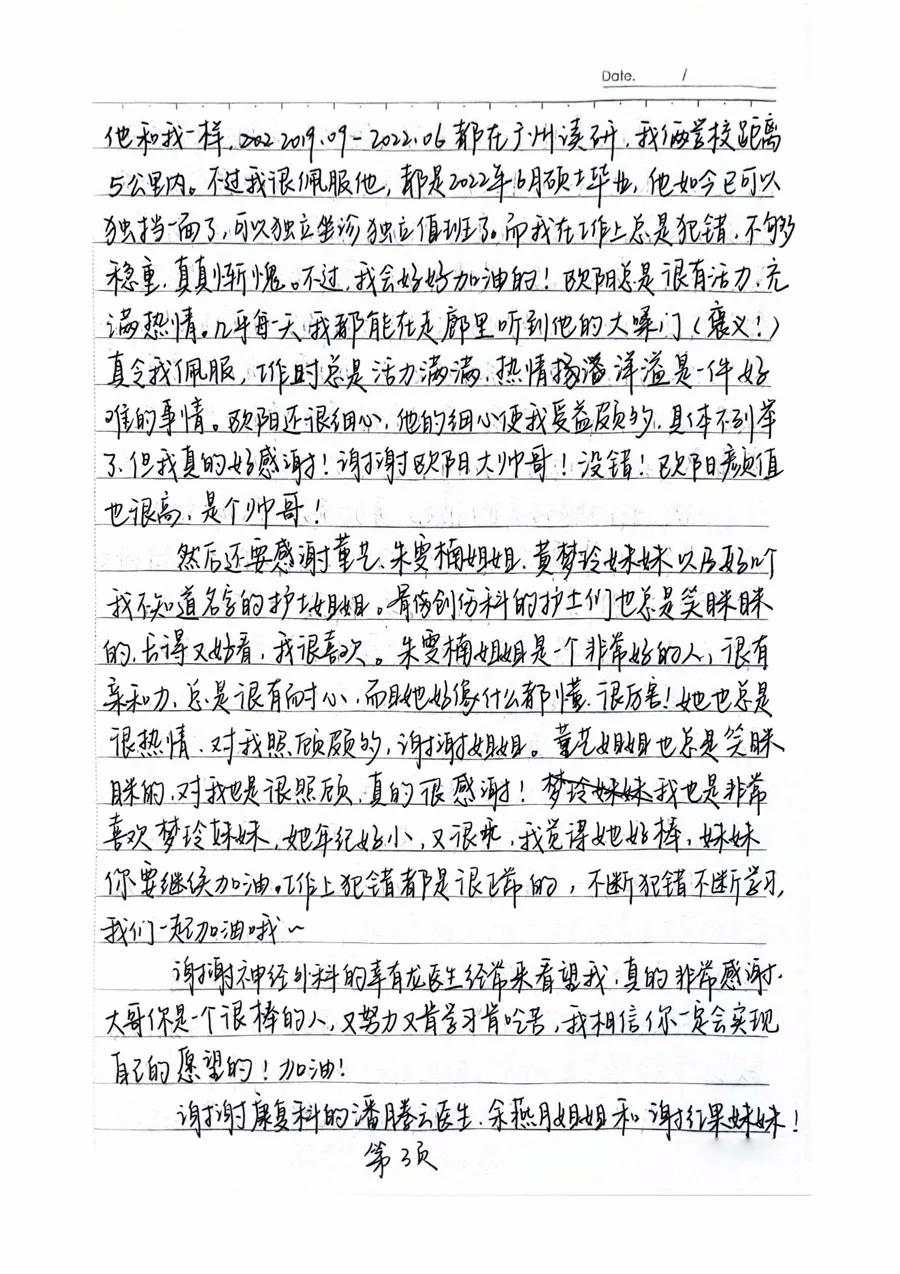 Date. /
他和我一样，202 2019.09-2022.06都在广州读研，我俩学校距离
5公里内。不过我很佩服他，都是2022年6月硕士毕业，他如今已可以
独挡一面了，可以独立坐诊独立值班了。而我在工作上总是犯错、不够
稳重，真真惭愧。不过，我会好好加油的！欧阳总是很有活力、充
满热情。几乎每一天我都能在走廊里听到他的大嗓门（褒义！）
真令我佩服，工作时总是活力满满、热情洋溢是一件好
难的事情。欧阳还很细心，他的细心使我受益颇多，具体不列举
了，但我真的好感谢！谢谢欧阳大帅哥！没错！欧阳颜值
也很高，是个帅哥！
然后还要感谢董艺、朱雯楠姐姐、黄梦玲妹妹以及好几个
我不知道名字的护士姐姐。骨伤创伤科的护士们也总是笑眯眯
的，长得又好看，我很喜欢。朱雯楠姐姐是一个非常好的人，很有
亲和力，总是很有耐心，而且她好像什么都懂，很厉害！她也总是
很热情，对我照顾颇多，谢谢姐姐。董艺姐姐也总是笑眯
眯的，对我也是很照顾，真的很感谢！梦玲妹妹我也是非常
喜欢梦玲妹妹，她年纪好小，又很乖，我觉得她好棒，妹妹
你要继续加油。工作上犯错都是很正常的，不断犯错不断学习，
我们一起加油哦~
谢谢神经外科的覃有龙医生经常来看望我，真的非常感谢。
大哥你是一个很棒的人，又努力又肯学习肯吃苦，我相信你一定会实现
自己的愿望的！加油！
谢谢康复科的潘腾云医生、余燕月姐姐和谢红果妹妹！
第3页